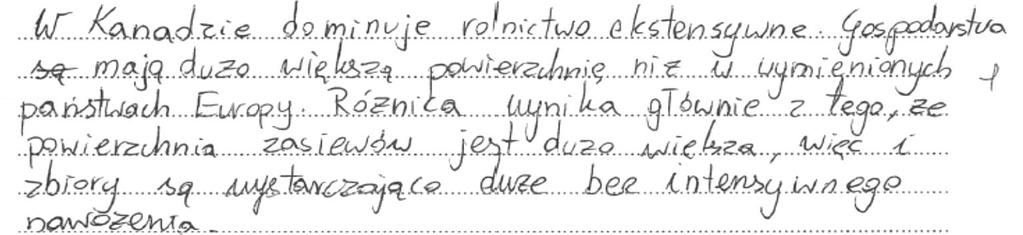 W Kanadzie dominuje rolnictwo ekstensywne. Gospodarstwa
są mają dużo większą powierzchnię niż w wymienionych
państwach Europy. Różnica wynika głównie z tego, że
powierzchnia zasiewów jest dużo większa, więc i
zbiory są wystarczająco duże bez intensywnego
nawożenia.